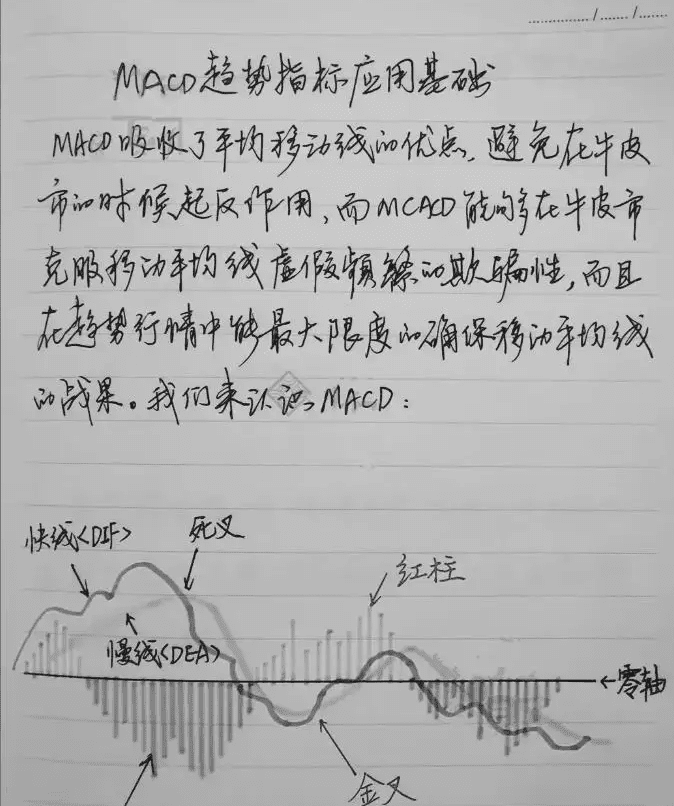 ....../....../......
MACD趋势指标应用基础
MACD吸收了平均移动线的优点，避免在牛皮
市的时候起反作用，而MCACD能够在牛皮市
克服移动平均线虚假频繁的欺骗性，而且
在趋势行情中能最大限度的确保移动平均线
的战果。我们来认识MACD：
快线<DIF>
死叉
红柱
慢线<DEA>
←零轴
金叉